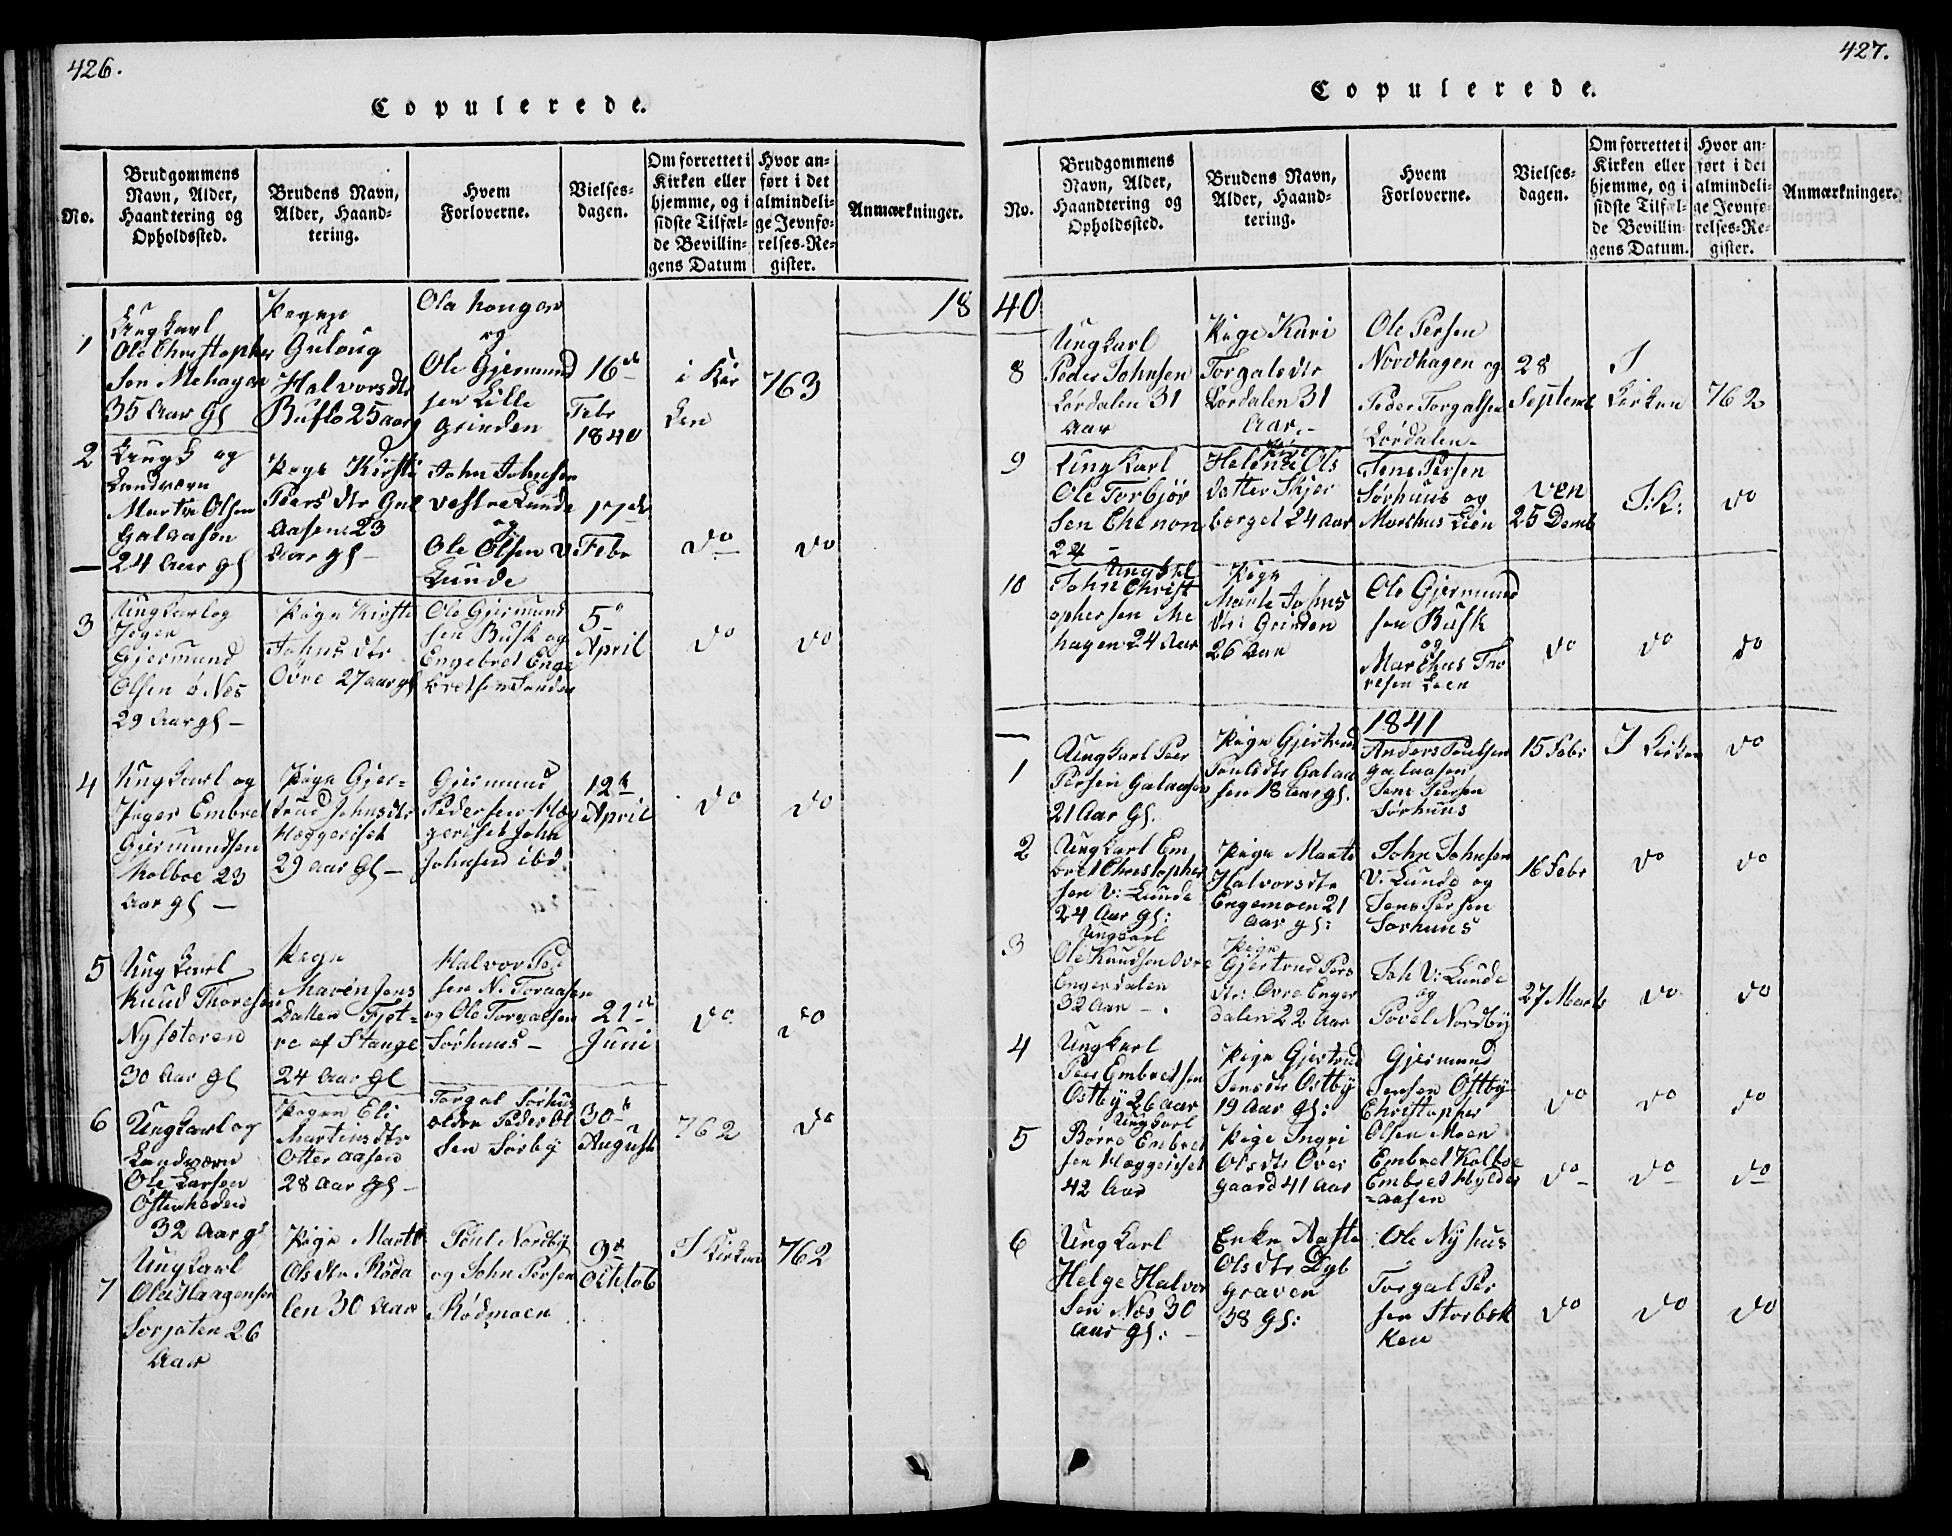 426.
Copulerede.
No.
Brudgommens
Navn, Alder,
Haandtering og
Opholdssted.
Brudens Navn,
Alder, Haand-
tering.
Hvem
Forloverne.
Vielses-
dagen.
Om forrettet i
Kirken eller
hjemme, og i
sidste Tilfæl-
de Bevillin-
gens Datum
Hvor an-
ført i det
almindeli-
ge Jevnfø-
relses-Re-
gister.
Anmærkninger.
18
1
Ungkarl
Ole Christopher
Sen Mehagen
35 Aar Gl
Guloug
Halvorsdtr
Buflo 25 aar
Ola
og
Ole Gjermund
sen Lille
Grinden
16de
Febr
1840
i Kir
ken
763
2
Ungk og
Landværn
Martin Olsen
Galaasen
24 Aar gl
Pige Kirsti
Peers dtr Gal
aasen 23
Aar gl
John Johnsen
vestre Lunde
og
Ole Olsen V
Lunde
17de
Febr
do
do
3
Ungkarl og
Jeger
Gjermund
Olsen ö Næs
29 Aar gl
Pige Kirsti
Johns dtr
Övre 27 aar gl
Ole Gjermund
sen Busk og
Engebret Enge
bretsen
5te
April
do
do
4
Ungkarl og
Jeger Embret
Gjermundsen
Kolboe 23
Aar gl
Pige Gjer-
trud Johnsdtr
Hæggeriset
29 aar gl
Gjermund
Pedersen Hæg
geriset John
Johnsen ibd
12te
April
do
do
5
Ungkarl
Knud Thoresen
Nysæteren
30 Aar gl
Pige
Maren Jens
Datter Fjet-
re af Stange
24 Aar gl
Halvor Peer
sen N. Toraasen
og Ole Torgalsen
Sørhuus
21de
Juni
do
do
6
Ungkarl og
Landværn
Ole Larsen
Östenheden
32 Aar gl
Pigen Eli
Martinsdtr
Otter aasen
28 Aar gl
Torgal Sørhus
Peder Ol
sen Sørby
30te
August
762
do
7
Ungkarl
Ole Haagensen
26
Aar
Pige Marte
Olsdtr Röda
len 30 Aar
Poul Nordby
og John Persen
Rödmoen
9de
October
I Kirken
762
427.
Copulerede.
No.
Brudgommens
Navn, Alder,
Haandtering og
Opholdssted.
Brudens Navn,
Alder, Haand-
tering.
Hvem
Forloverne.
Vielses-
dagen.
Om forrettet i
Kirken eller
hjemme, og i
sidste Tilfæl-
de Bevillin-
gens Datum.
Hvor an-
ført i det
almindeli-
ge Jevnfø-
relses-Re-
gister.
Anmærkninger.
40
8
Ungkarl
Peder Johnsen
Lørdalen 31
Aar
Pige Kari
Torgalsdtr
Lørdalen 31
Aar.
Ole Persen
Nordhagen og
Peder Torgalsen
Lørdalen
28
Septemb
I
Kirken
762
9
Ungkarl
Ole Torbjør
Sen
24
Helene Ols
datter Skjer
berget 24 Aar
Jens Persen
Sørhuus og
Marthus Lien
den
25 Decmb
I. K:
do
10
Ungkarl
John Christ
ophersen Me
hagen 24 Aar
Pige
Marte Johns
dtr: Grinden
26 Aar
Ole Gjermund
sen Busk
og
Marthus Tho
resen Lien
do
do
do
1841
1
Ungkarl Peer
Persen Galaasen
21 Aar Gl.
Pige Gjertrud
Poulsdtr Galaa
sen 18 Aar gl.
Anders Poulsen
Galaasen
Jens Persen
Sørhuus
15 Febr
I Kirken
do
2
Ungkarl Em
bret Christopher
sen V: Lunde
24 Aar gl:
Pige Marte
Halvorsdtr
Engemoen 21
Aar gl:
John Johnsen
V: Lunde og
Jens Persen
Sørhuus
16 Febr
do
do
3
Ungkarl
Ole Knudsen Øvre
Engerdalen
32 Aar
Pige
Gjertrud Pers
dtr: Øvre Enger
dalen 22 Aar
Joh V: Lunde
og
Povel Nordby
27 Marts
do
do
4
Ungkarl
Peer Embretsen
Ostby 26 Aar
Pige Gjertrud
Jensdtr Ostby
19 Aar gl:
Gjermund
Jensen Östby
Christopher
Olsen Moen
do
do
do
5
Ungkarl
Börre Embret
sen Hæggeriset
42 Aar
Pige Ingri
Olsdtr Över
gaard 41 Aar
Embret Kolboe
Embret Hylder
aasen
do
do
do
6
Ungkarl
Helge Halvor
Sen Næs 30
Aar gl:
Enke Aaste
Olsdtr Dyb
graven
38 gl:
Ole Nyhus
Torgal Per
sen Storbek
ken
do
do
do